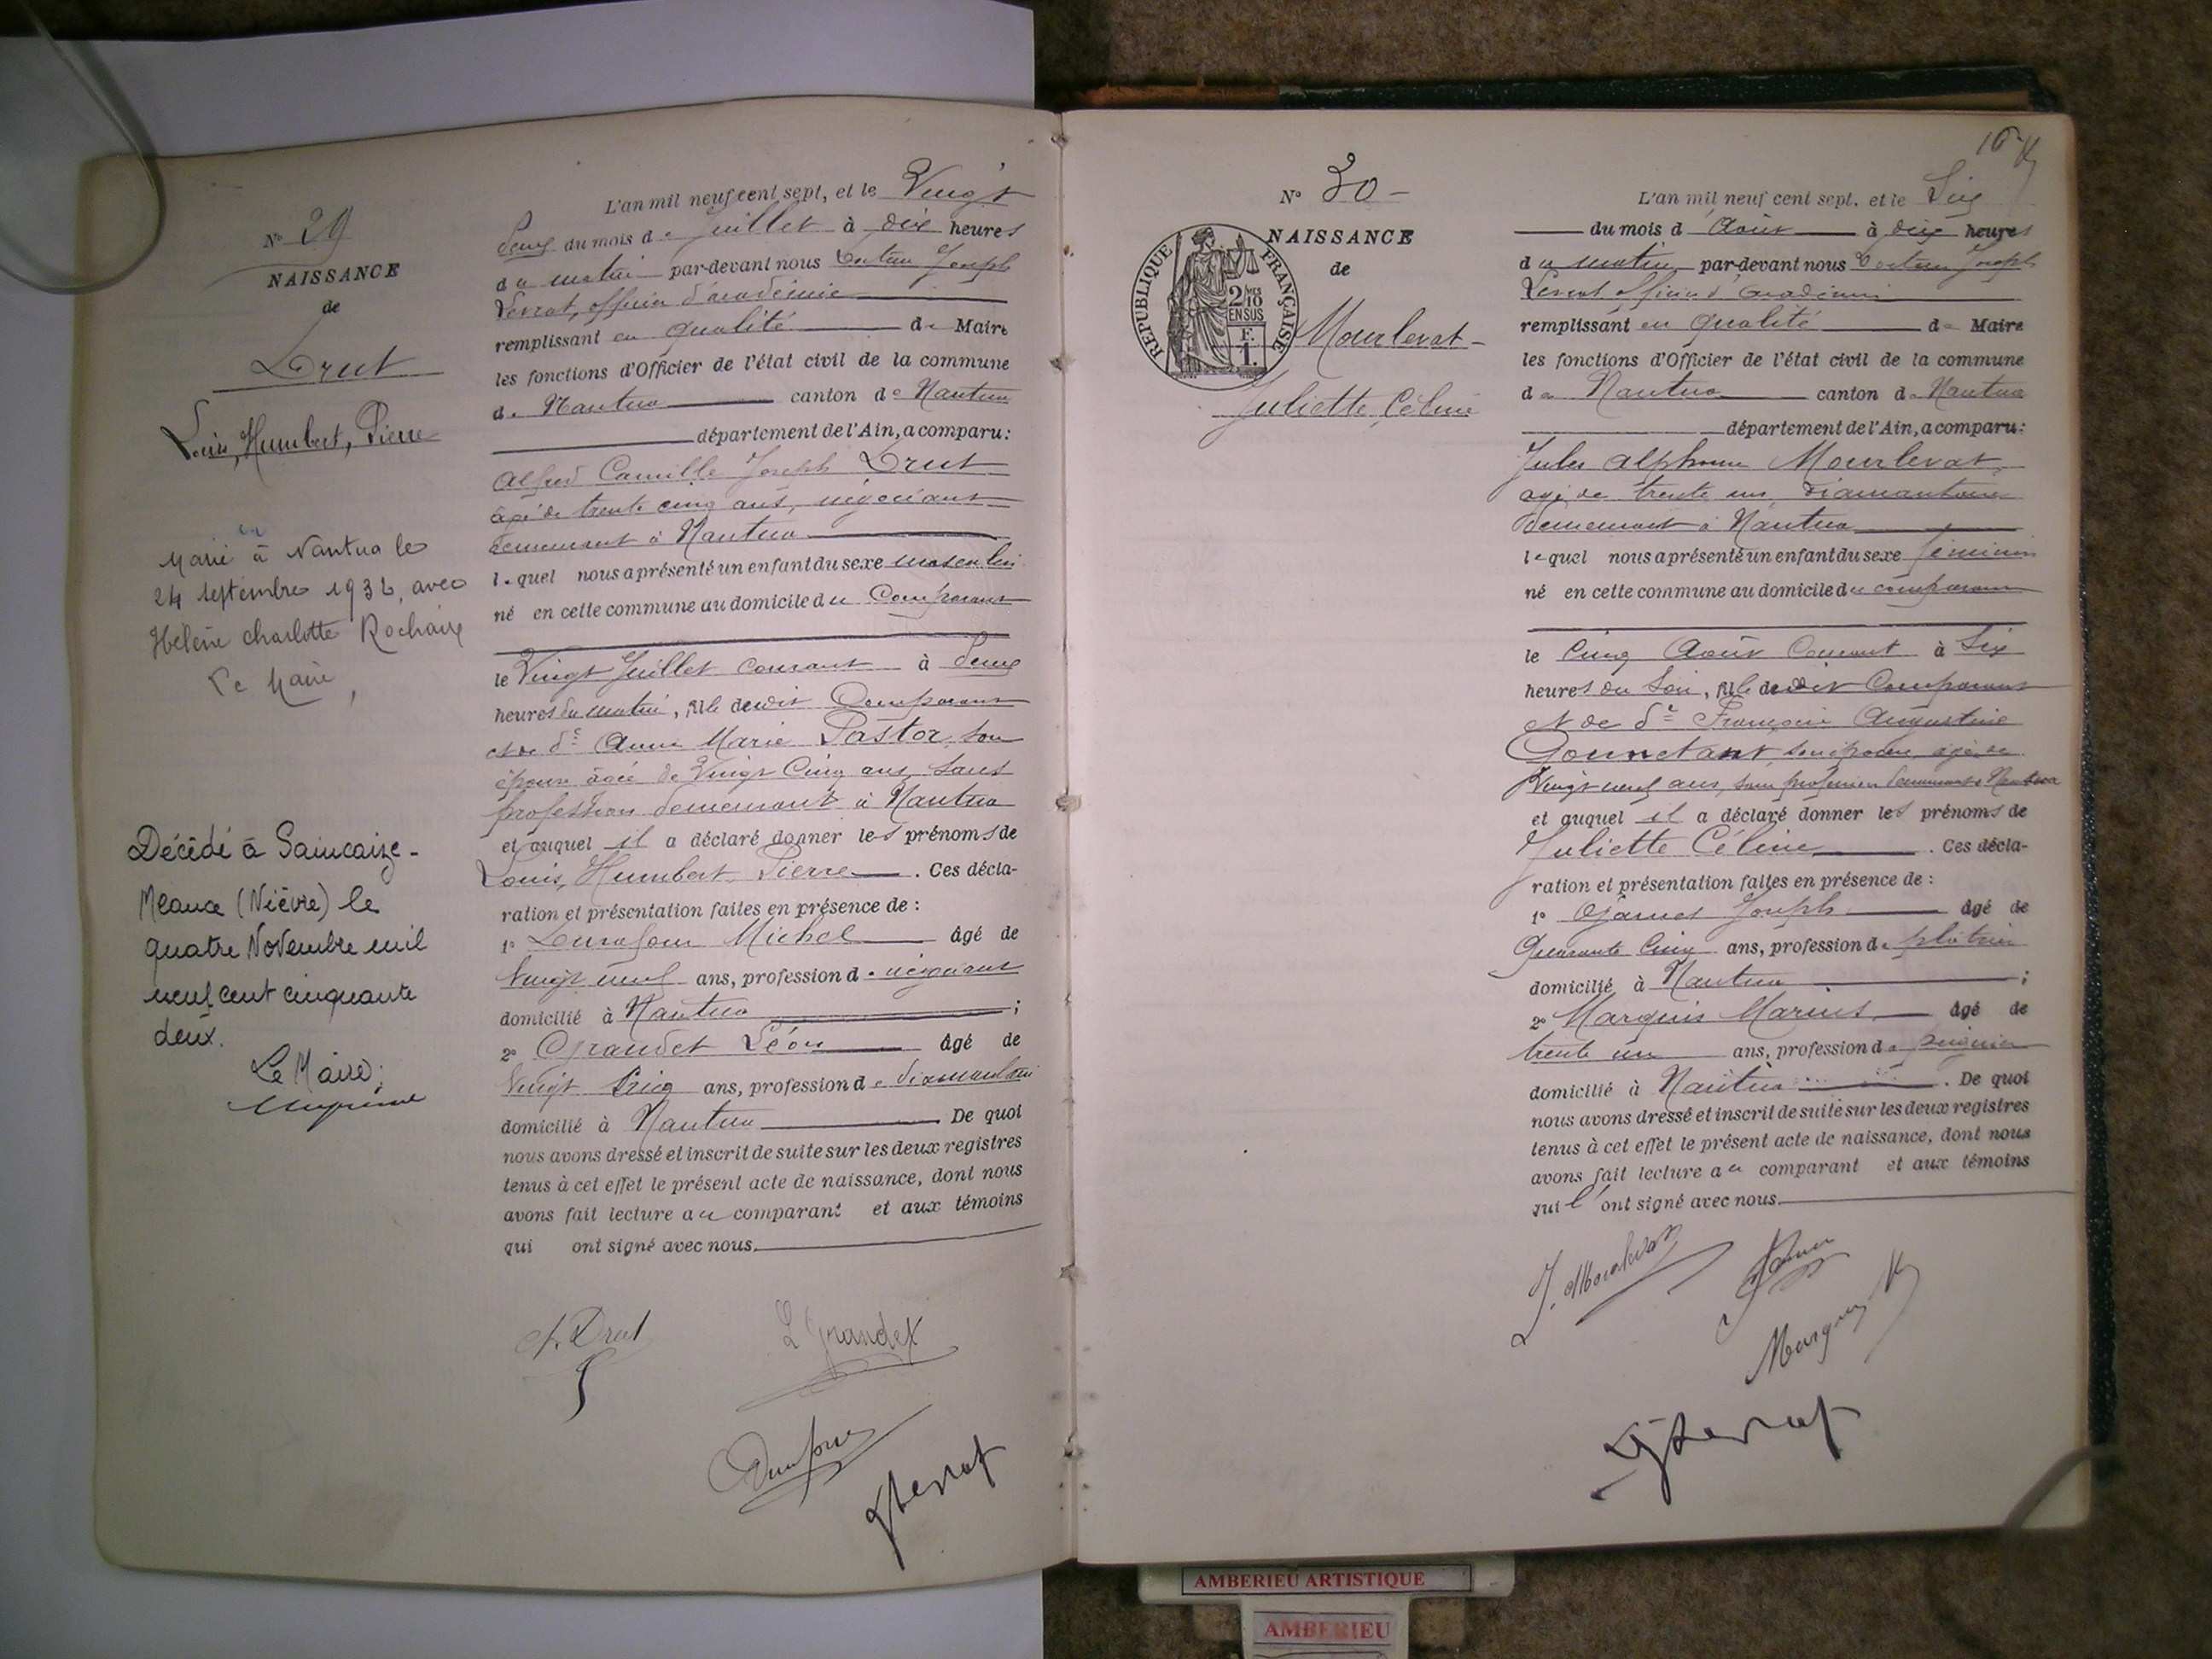 N° 29
NAISSANCE
de
Drut
Louis, Humbert, Pierre
Marié à Nantua le
24 septembre 1932, avec
Hélène Charlotte Rochaix
Le Maire,
Décédé à Saincaize-
Meauce (Nièvre) le
quatre Novembre mil
neuf cent cinquante
deux.
Le Maire,
L'an mil neuf cent sept, et le Vingt
deux du mois de Juillet à dix heures
du matin par-devant nous Docteur Joseph
officier d'académie
remplissant en qualité de Maire
les fonctions d'Officier de l'état civil de la commune
de Nantua canton de Nantua
département de l'Ain, a comparu:
Alfred Camille Joseph Drut
âgé de trente cinq ans, négociant
demeurant à Nantua
lequel nous a présenté un enfant du sexe masculin
né en cette commune au domicile du Comparant
le Vingt Juillet courant à deux
heures du matin, fils dudit Comparant
et de de Anne Marie Pastor son
épouse âgée de Vingt Cinq ans, sans
profession demeurant à Nantua
et auquel il a déclaré donner les prénoms de
Louis, Humbert, Pierre. Ces décla-
ration et présentation faites en présence de :
1° Durafour Michel âgé de
Vingt neuf ans, profession de négociant
domicilié à Nantua ;
2° Grandet Léon âgé de
Vingt Cinq ans, profession de diamantaire
domicilié à Nantua De quoi
nous avons dressé et inscrit de suite sur les deux registres
tenus à cet effet le présent acte de naissance, dont nous
avons fait lecture au comparant et aux témoins
qui ont signé avec nous.
A. Drut
L Grandet
16
N° 30 -
NAISSANCE
de
RÉPUBLIQUE FRANÇAISE
2/10 MES
EN SUS
F.
1.
Mourlevat -
Juliette Céline
L'an mil neuf cent sept, et le Six
du mois d'Août à dix heures
du matin par-devant nous Docteur Joseph
officier d'académie
remplissant en qualité de Maire
les fonctions d'Officier de l'état civil de la commune
de Nantua canton de Nantua
département de l'Ain, a comparu:
Jules Alphonse Mourlevat
âgé de trente un, diamantaire
demeurant à Nantua
lequel nous a présenté un enfant du sexe féminin
né en cette commune au domicile du comparant
le Cinq Août Courant à Six
heures du Soir, fille dudit Comparant
et de de Françoise Augustine
son épouse âgée de
Vingt neuf ans, sans profession demeurant à Nantua
et auquel il a déclaré donner les prénoms de
Juliette Céline. Ces décla-
ration et présentation faites en présence de :
1° Joseph âgé de
Quarante Cinq ans, profession de plâtrier
domicilié à Nantua ;
2° Marquis Marius âgé de
trente un ans, profession de
domicilié à Nantua. De quoi
nous avons dressé et inscrit de suite sur les deux registres
tenus à cet effet le présent acte de naissance, dont nous
avons fait lecture au comparant et aux témoins
qui l'ont signé avec nous.
J. Mourlevat
AMBERIEU ARTISTIQUE
AMBERIEU